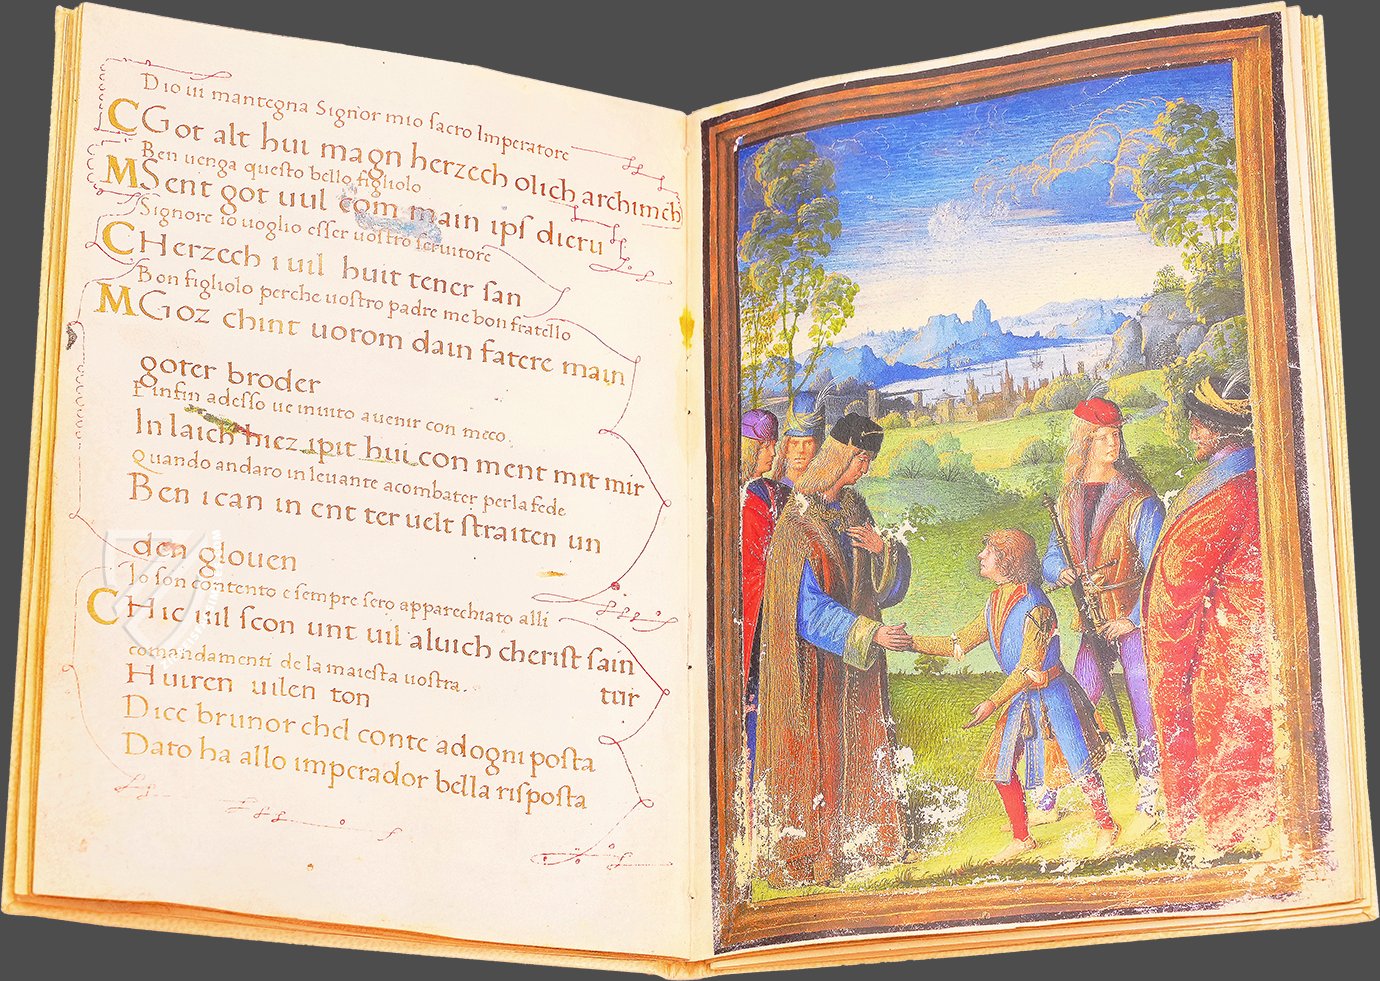 Dio ui mantegna Signor mio sacro Imperatore
C Got alt hui magn herzech olich archinch
Ben uenga questo bello figliolo
M Sent got uuil com main ips dieru
Signore io uoglio esser uostro seruitore
C Herzech i uil huit tener san
Bon figliolo perche uostro padre me bon fratello
M Goz chint uorom dain fatere main
goter broder
Finfin adesso ue inuito a uenir con meco.
In laich hiez ipit hui con ment mit mir
Quando andaro in leuante acombater per la fede
Ben i can in ent ter uelt straiten un
den glouen
Io son contento e sempre sero apparechiato alli
C Hic uil scon unt uil aluich cherist sain
comandamenti de la maiesta uostra.
Huiren uilen ton tur
Dice brunor chel conte adogni posta
Dato ha allo imperador bella risposta